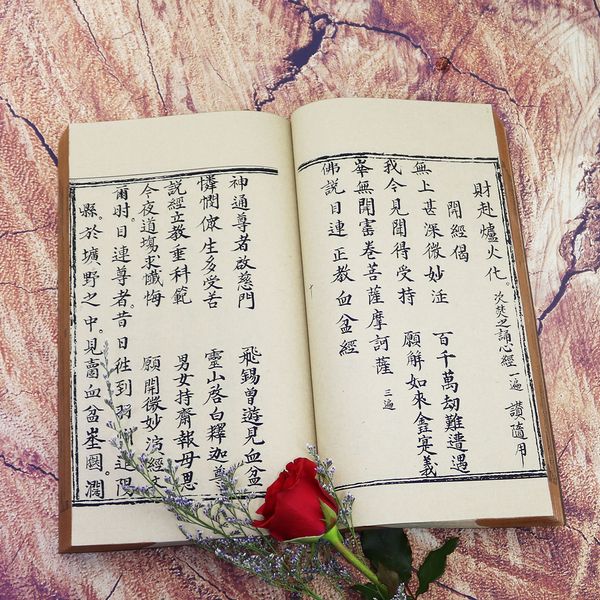 財赴爐火化。次焚之誦心經一遍 讚隨用
開經偈
無上甚深微妙法 百千萬劫難遭遇
我今見聞得受持 願解如來寔義
無開富卷菩薩摩訶薩 三遍
佛說目連正教血盆經
神通尊者啟慈門 飛錫曾遊見血盆
憐憫眾生多受苦 靈山啓白釋迦尊
說經立教垂科範 男女持齋報母恩
今夜道塲求懺悔 願開微妙演經文
爾時。目連尊者。昔日徃到羽追陽
縣。於壙野之中。見血盆。濶